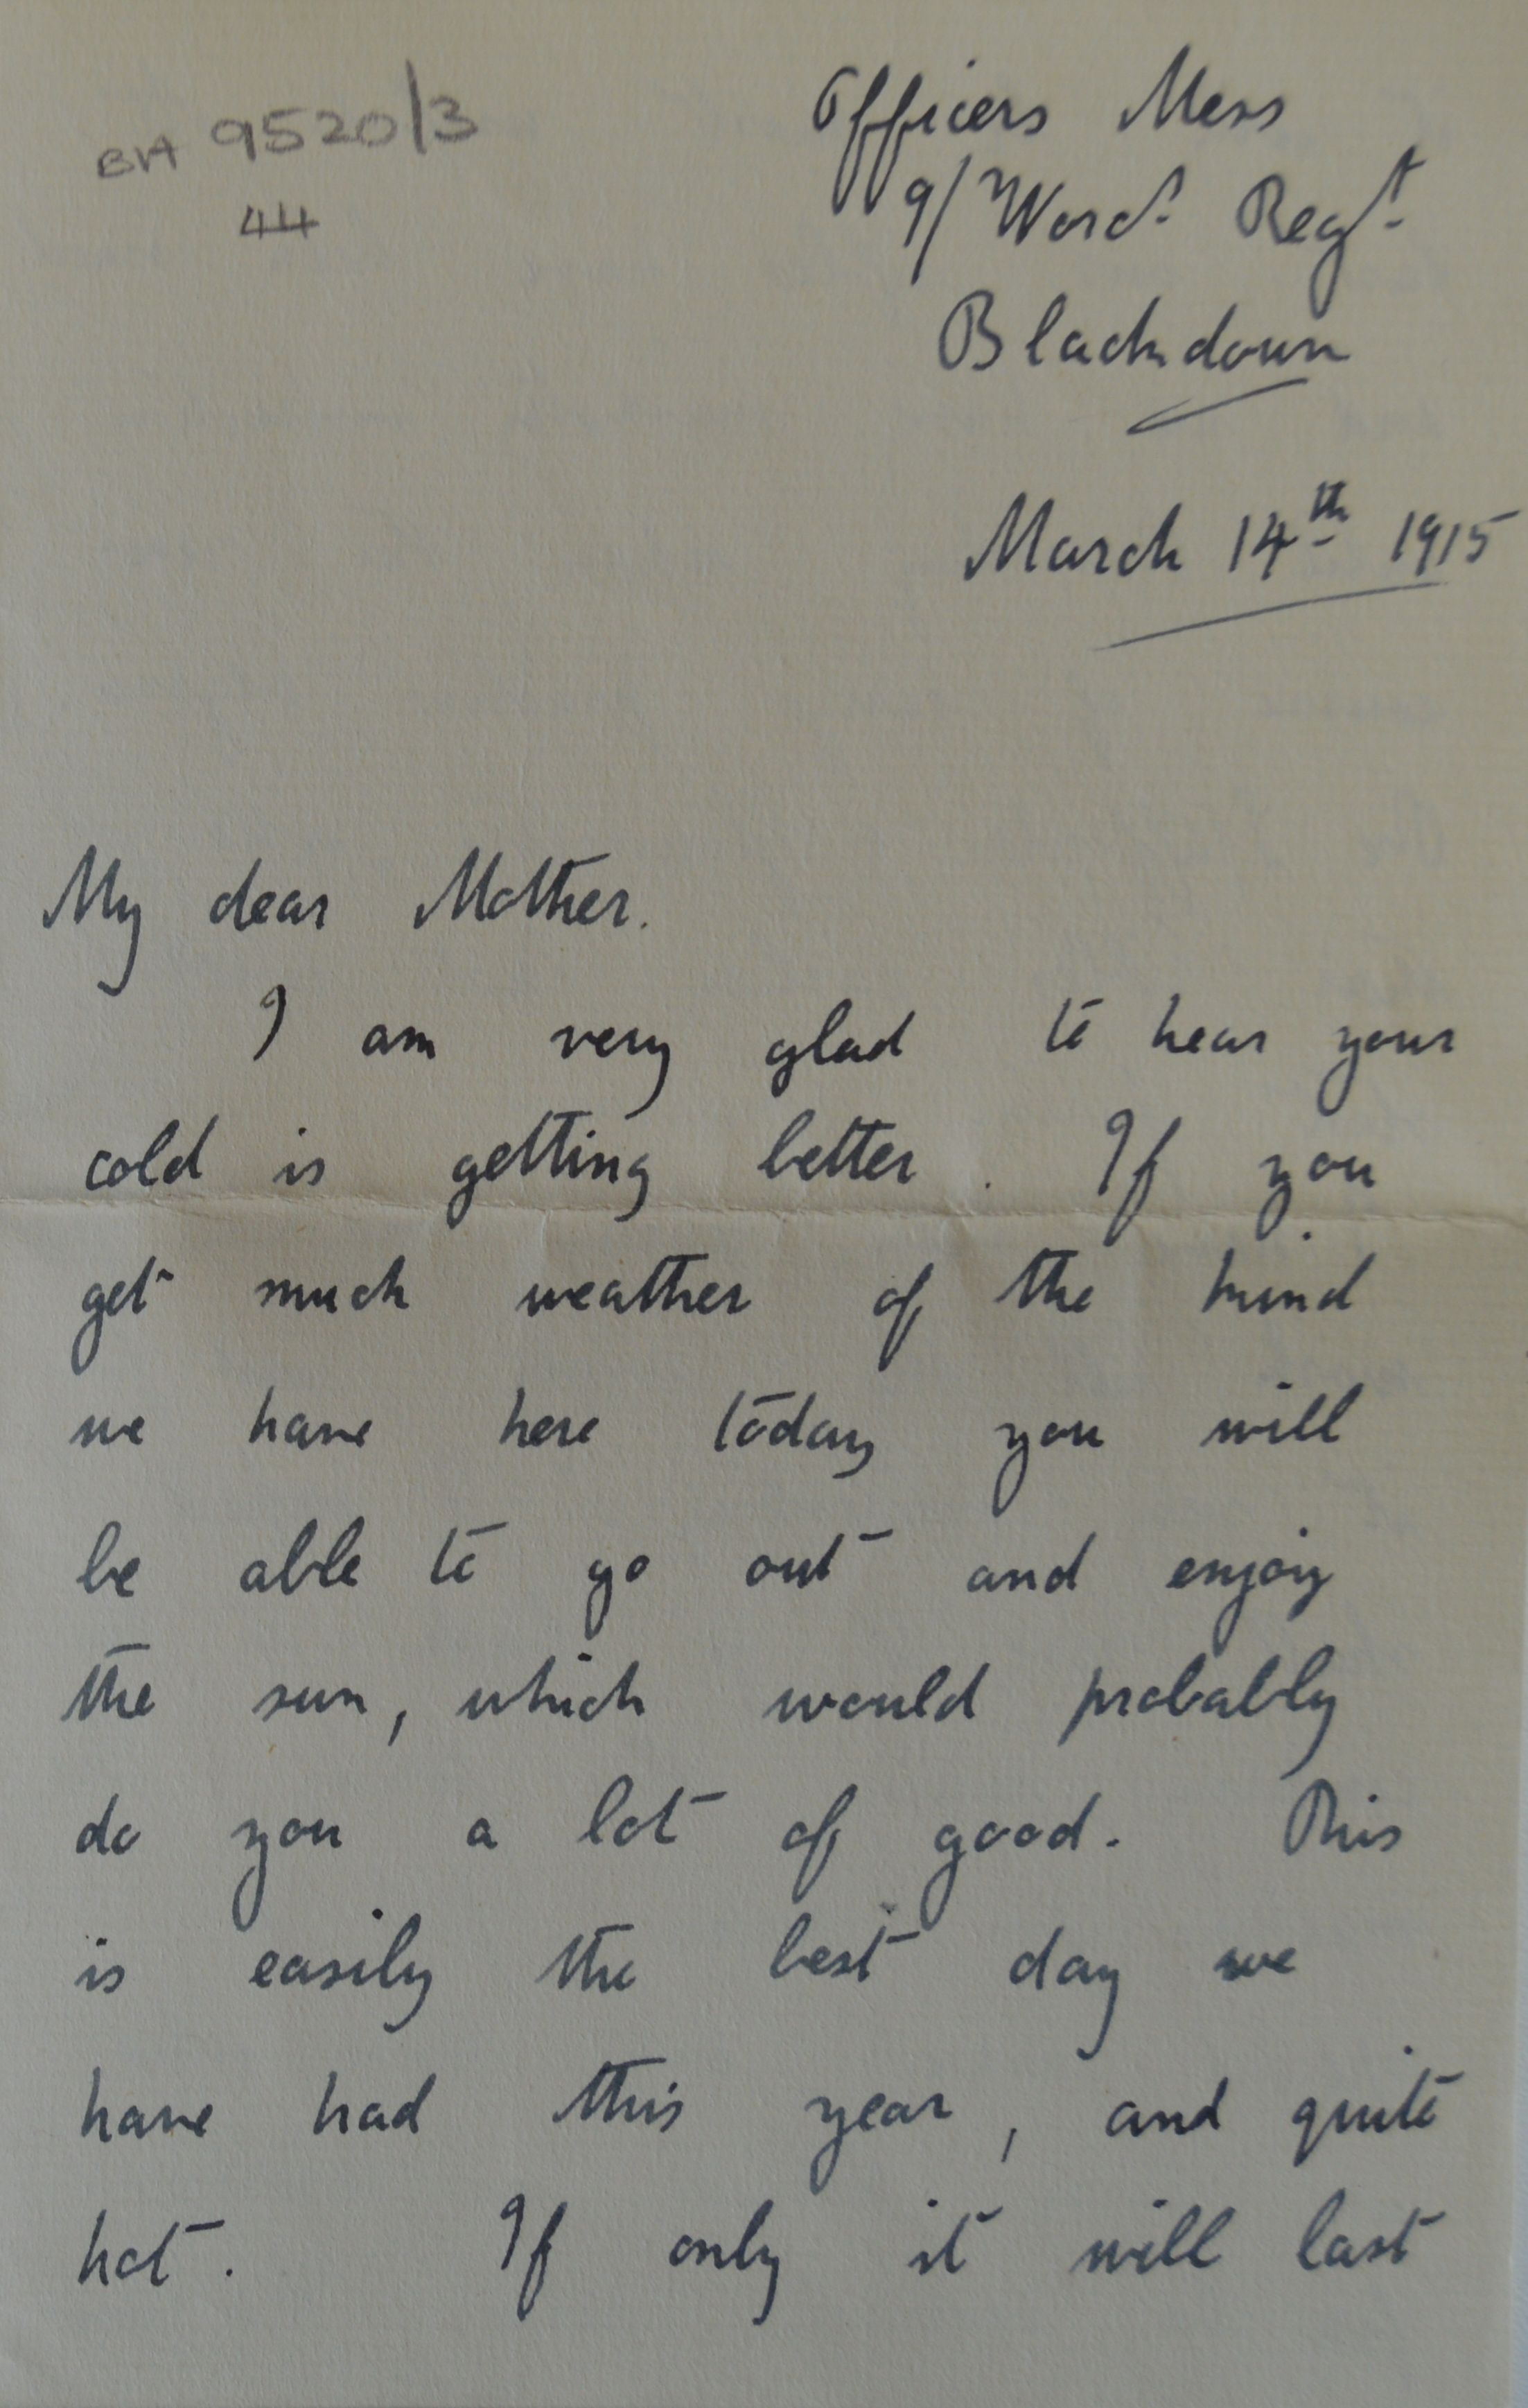 BA 9520/3
44
Officers Mess
9/Worc. Regt.
Blackdown
March 14th 1915
My dear Mother.
I am very glad to hear your
cold is getting better. If you
get much weather of the kind
we have here today you will
be able to go out and enjoy
the sun, which would probably
do you a lot of good. This
is easily the best day we
have had this year, and quite
hot. If only it will last